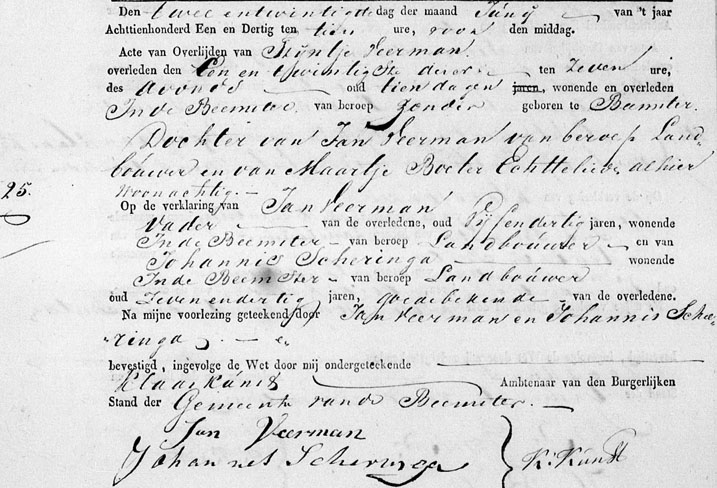 Den twee entwintigste dag der maand Junij van 't jaar
Achttienhonderd Een en Dertig ten tien ure, voor den middag.
Acte van Overlijden van Trijntje Veerman
overleden den Een en twintigste dezer ten Zeven ure,
des Avonds oud tien dagen jaren, wonende en overleden
In de Beemster van beroep Zonder geboren te Beemster.
Dochter van Jan Veerman van beroep Land-
bouwer en van Maartje Boeter Echttelieden alhier
25.
Woonachtig.
Op de verklaring van Jan Veerman
Vader van de overledene, oud Vijfendertig jaren, wonende
In de Beemster van beroep Landbouwer en van
Johannis Scheringa wonende
In de Beemster van beroep Landbouwer
oud Zevenendertig jaren, goedebekende van de overledene.
Na mijne voorlezing geteekend door Jan Veerman en Johannis Sche-
ringa
bevestigd, ingevolge de Wet door mij ondergeteekende
Klaas Kunst Ambtenaar van den Burgerlijken
Stand der Gemeente van de Beemster.
Jan Veerman
Johannes Scheringa K. Kunst